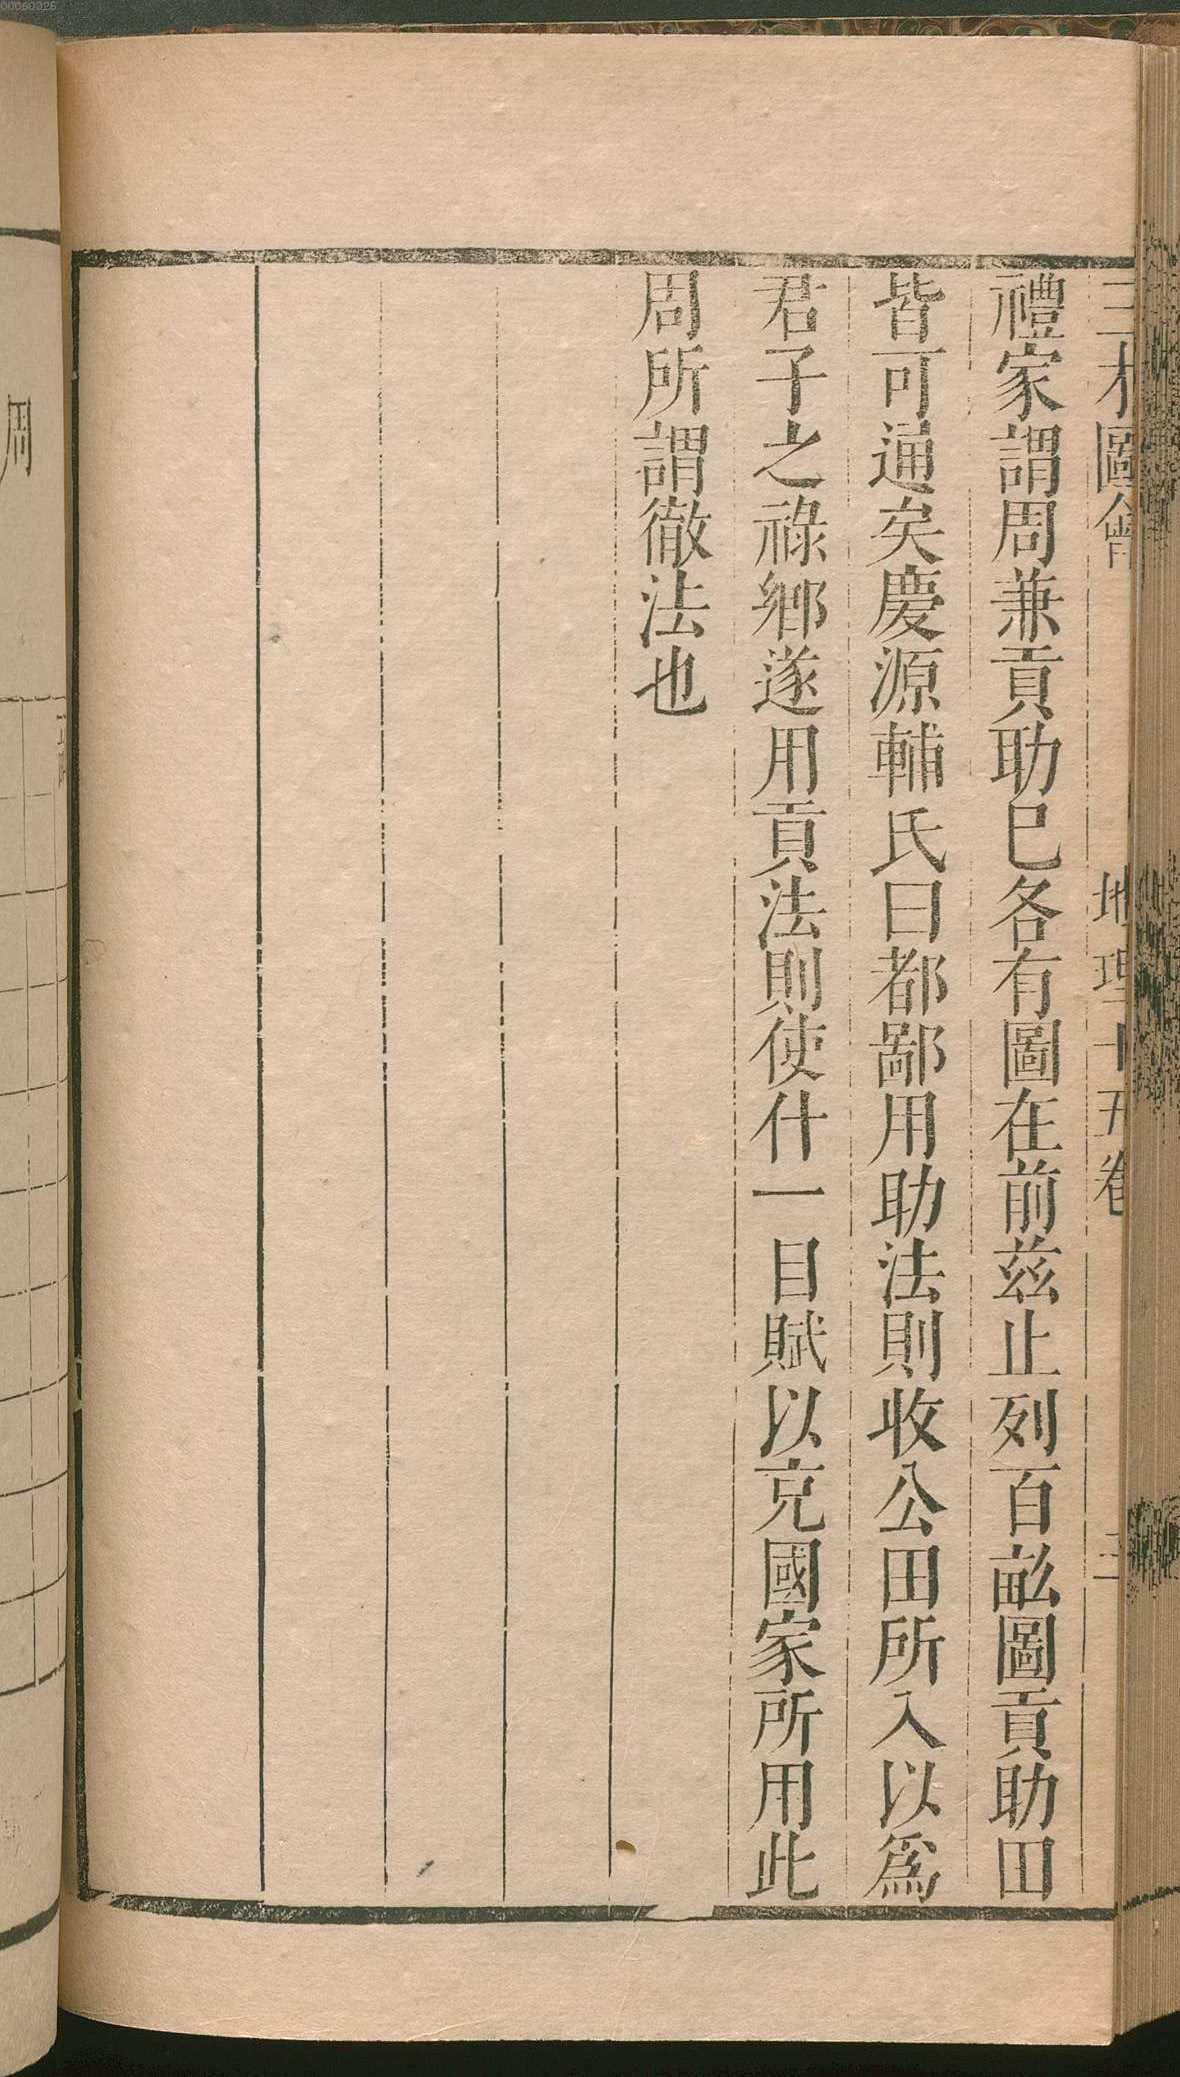 三才圖會 地理十五卷 三
禮家謂周兼貢助已各有圖在前兹止列百畝圖貢助田
皆可通矣慶源輔氏曰都鄙用助法則收公田所入以爲
君子之祿鄉遂用貢法則使什一目賦以克國家所用此
周所謂徹法也
周
00060326